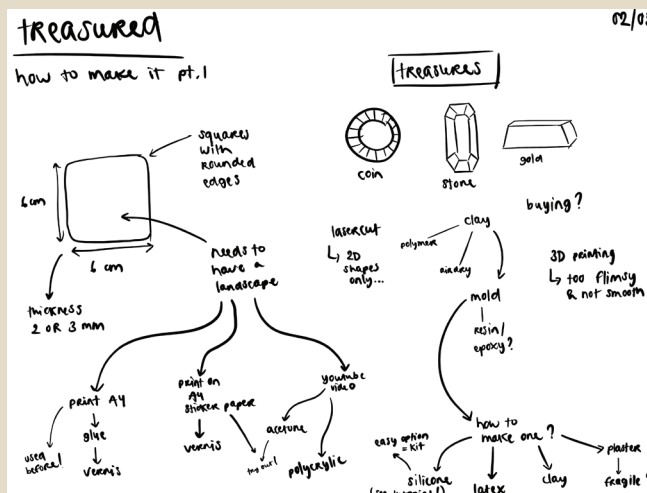 treasured
02/03
how to make it pt.1
treasures
squares
with
rounded
edges
6cm
6 cm
thickness
2 OR 3 mm
needs to
have a
landscape
print A4
used
before!
glue
vernis
print on
A4
sticker paper
vernis
try out!
youtube
video
acetone
polycrylic
coin
stone
gold
buying?
lasercut
2D
shapes
only...
clay
polymer
airdry
mold
resin/
epoxy?
3D printing
too flimsy
& not smooth
how to
make one?
easy option
= kit
silicone
latex
clay
plaster
fragile